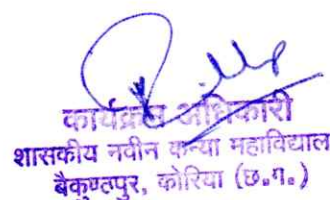 कार्यक्रम अधिकारी
शासकीय नवीन कन्या महाविद्याल
बैकुण्ठपुर, कोरिया (छ.ग.)